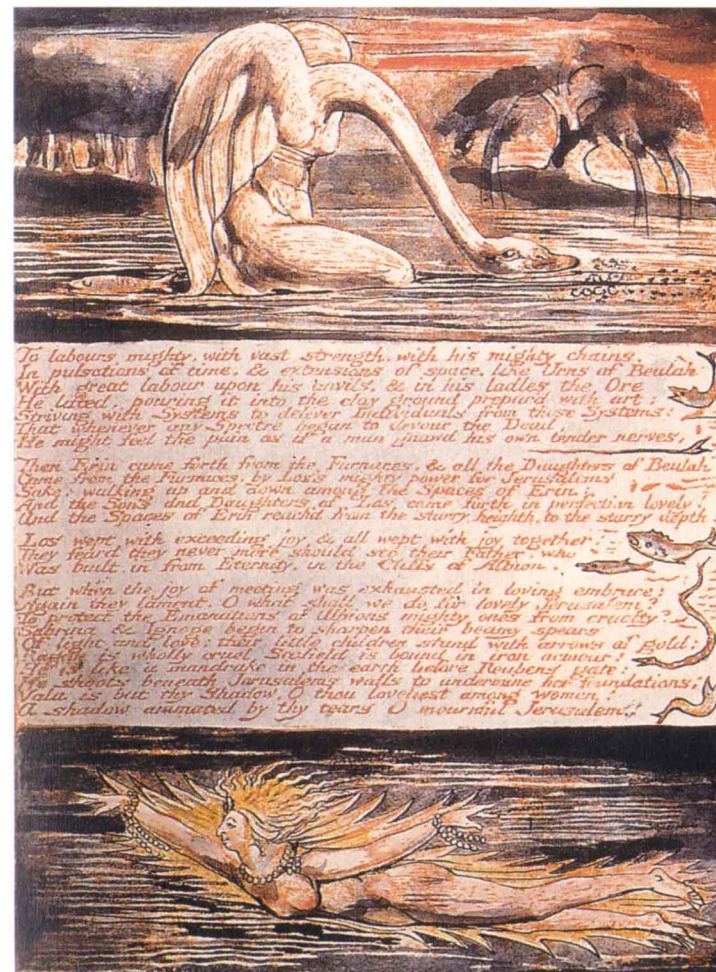 To labours mighty, with vast strength, with his mighty chains,
In pulsations of time, & extensions of space, like Urns of Beulah
With great labour upon his anvils, & in his ladles the Ore
He lifted, pouring it into the clay ground prepar'd with art;
Striving with Systems to deliver Individuals from those Systems:
That whenever any Spectre began to devour the Dead,
He might feel the pain as if a man gnawd his own tender nerves.
Then Erin came forth from the Furnaces, & all the Daughters of Beulah
Came from the Furnaces, by Los's mighty power for Jerusalems
Sake: walking up and down among the Spaces of Erin:
And the Sons and Daughters of Los came forth in perfection lovely!
And the Spaces of Erin reach'd from the starry heighth, to the starry depth.
Los wept with exceeding joy, & all wept with joy together:
They feard they never more should see their Father, who
Was built in from Eternity, in the Cliffs of Albion.
But when the joy of meeting was exhausted in loving embrace;
Again they lament. O what shall we do for lovely Jerusalem?
To protect the Emanations of Albions mighty ones from cruelty?
Sabrina & Ignoge begin to sharpen their beamy spears
Of light and love: their little children stand with arrows of gold:
is wholly cruel Scofield is bound in iron armour!
He is like a mandrake in the earth before Reubens gate:
He shoots beneath Jerusalems walls to undermine her foundations!
Vala is but thy Shadow, O thou loveliest among women!
A shadow animated by thy tears O mournful Jerusalem!